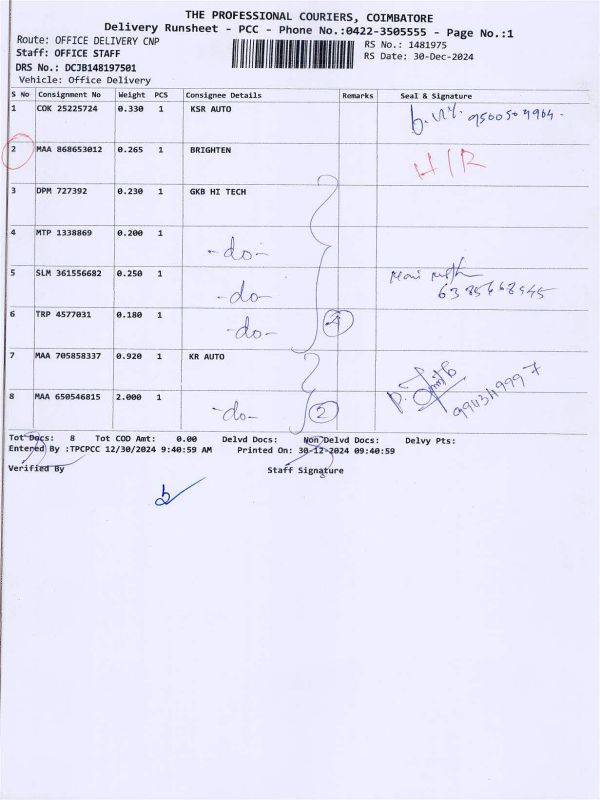 THE PROFESSIONAL COURIERS, COIMBATORE
Delivery Runsheet - PCC - Phone No.:0422-3505555 - Page No.:1
Route: OFFICE DELIVERY CNP
RS No.: 1481975
Staff: OFFICE STAFF
RS Date: 30-Dec-2024
DRS No.: DCJB148197501
Vehicle: Office Delivery
S No Consignment No Weight PCS Consignee Details Remarks Seal & Signature
1 COK 25225724 0.330 1 KSR AUTO
2 MAA 868653012 0.265 1 BRIGHTEN H/R
3 DPM 727392 0.230 1 GKB HI TECH
4 MTP 1338869 0.200 1 -do-
5 SLM 361556682 0.250 1 -do-
6 TRP 4577031 0.180 1 -do- 4
7 MAA 705858337 0.920 1 KR AUTO
8 MAA 650546815 2.000 1 -do- 2
Tot Docs: 8 Tot COD Amt: 0.00 Delvd Docs: Non Delvd Docs: Delvy Pts:
Entered By :TPCPCC 12/30/2024 9:40:59 AM Printed On: 30-12-2024 09:40:59
Verified By Staff Signature